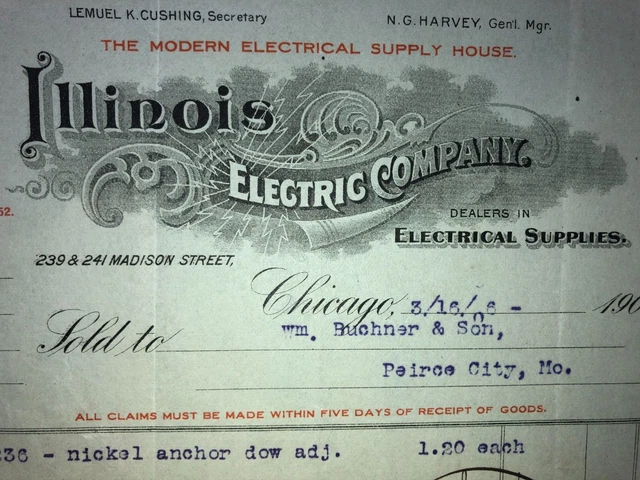 LEMUEL K. CUSHING, Secretary
N. G. HARVEY, Gen'l. Mgr.
THE MODERN ELECTRICAL SUPPLY HOUSE.
Illinois
ELECTRIC COMPANY.
52.
DEALERS IN
ELECTRICAL SUPPLIES.
239 & 241 MADISON STREET,
Chicago, 3/16/06 - 190
Sold to wm. Buchner & Son,
Peirce City, Mo.
ALL CLAIMS MUST BE MADE WITHIN FIVE DAYS OF RECEIPT OF GOODS.
236 - nickel anchor dow adj. 1.20 each